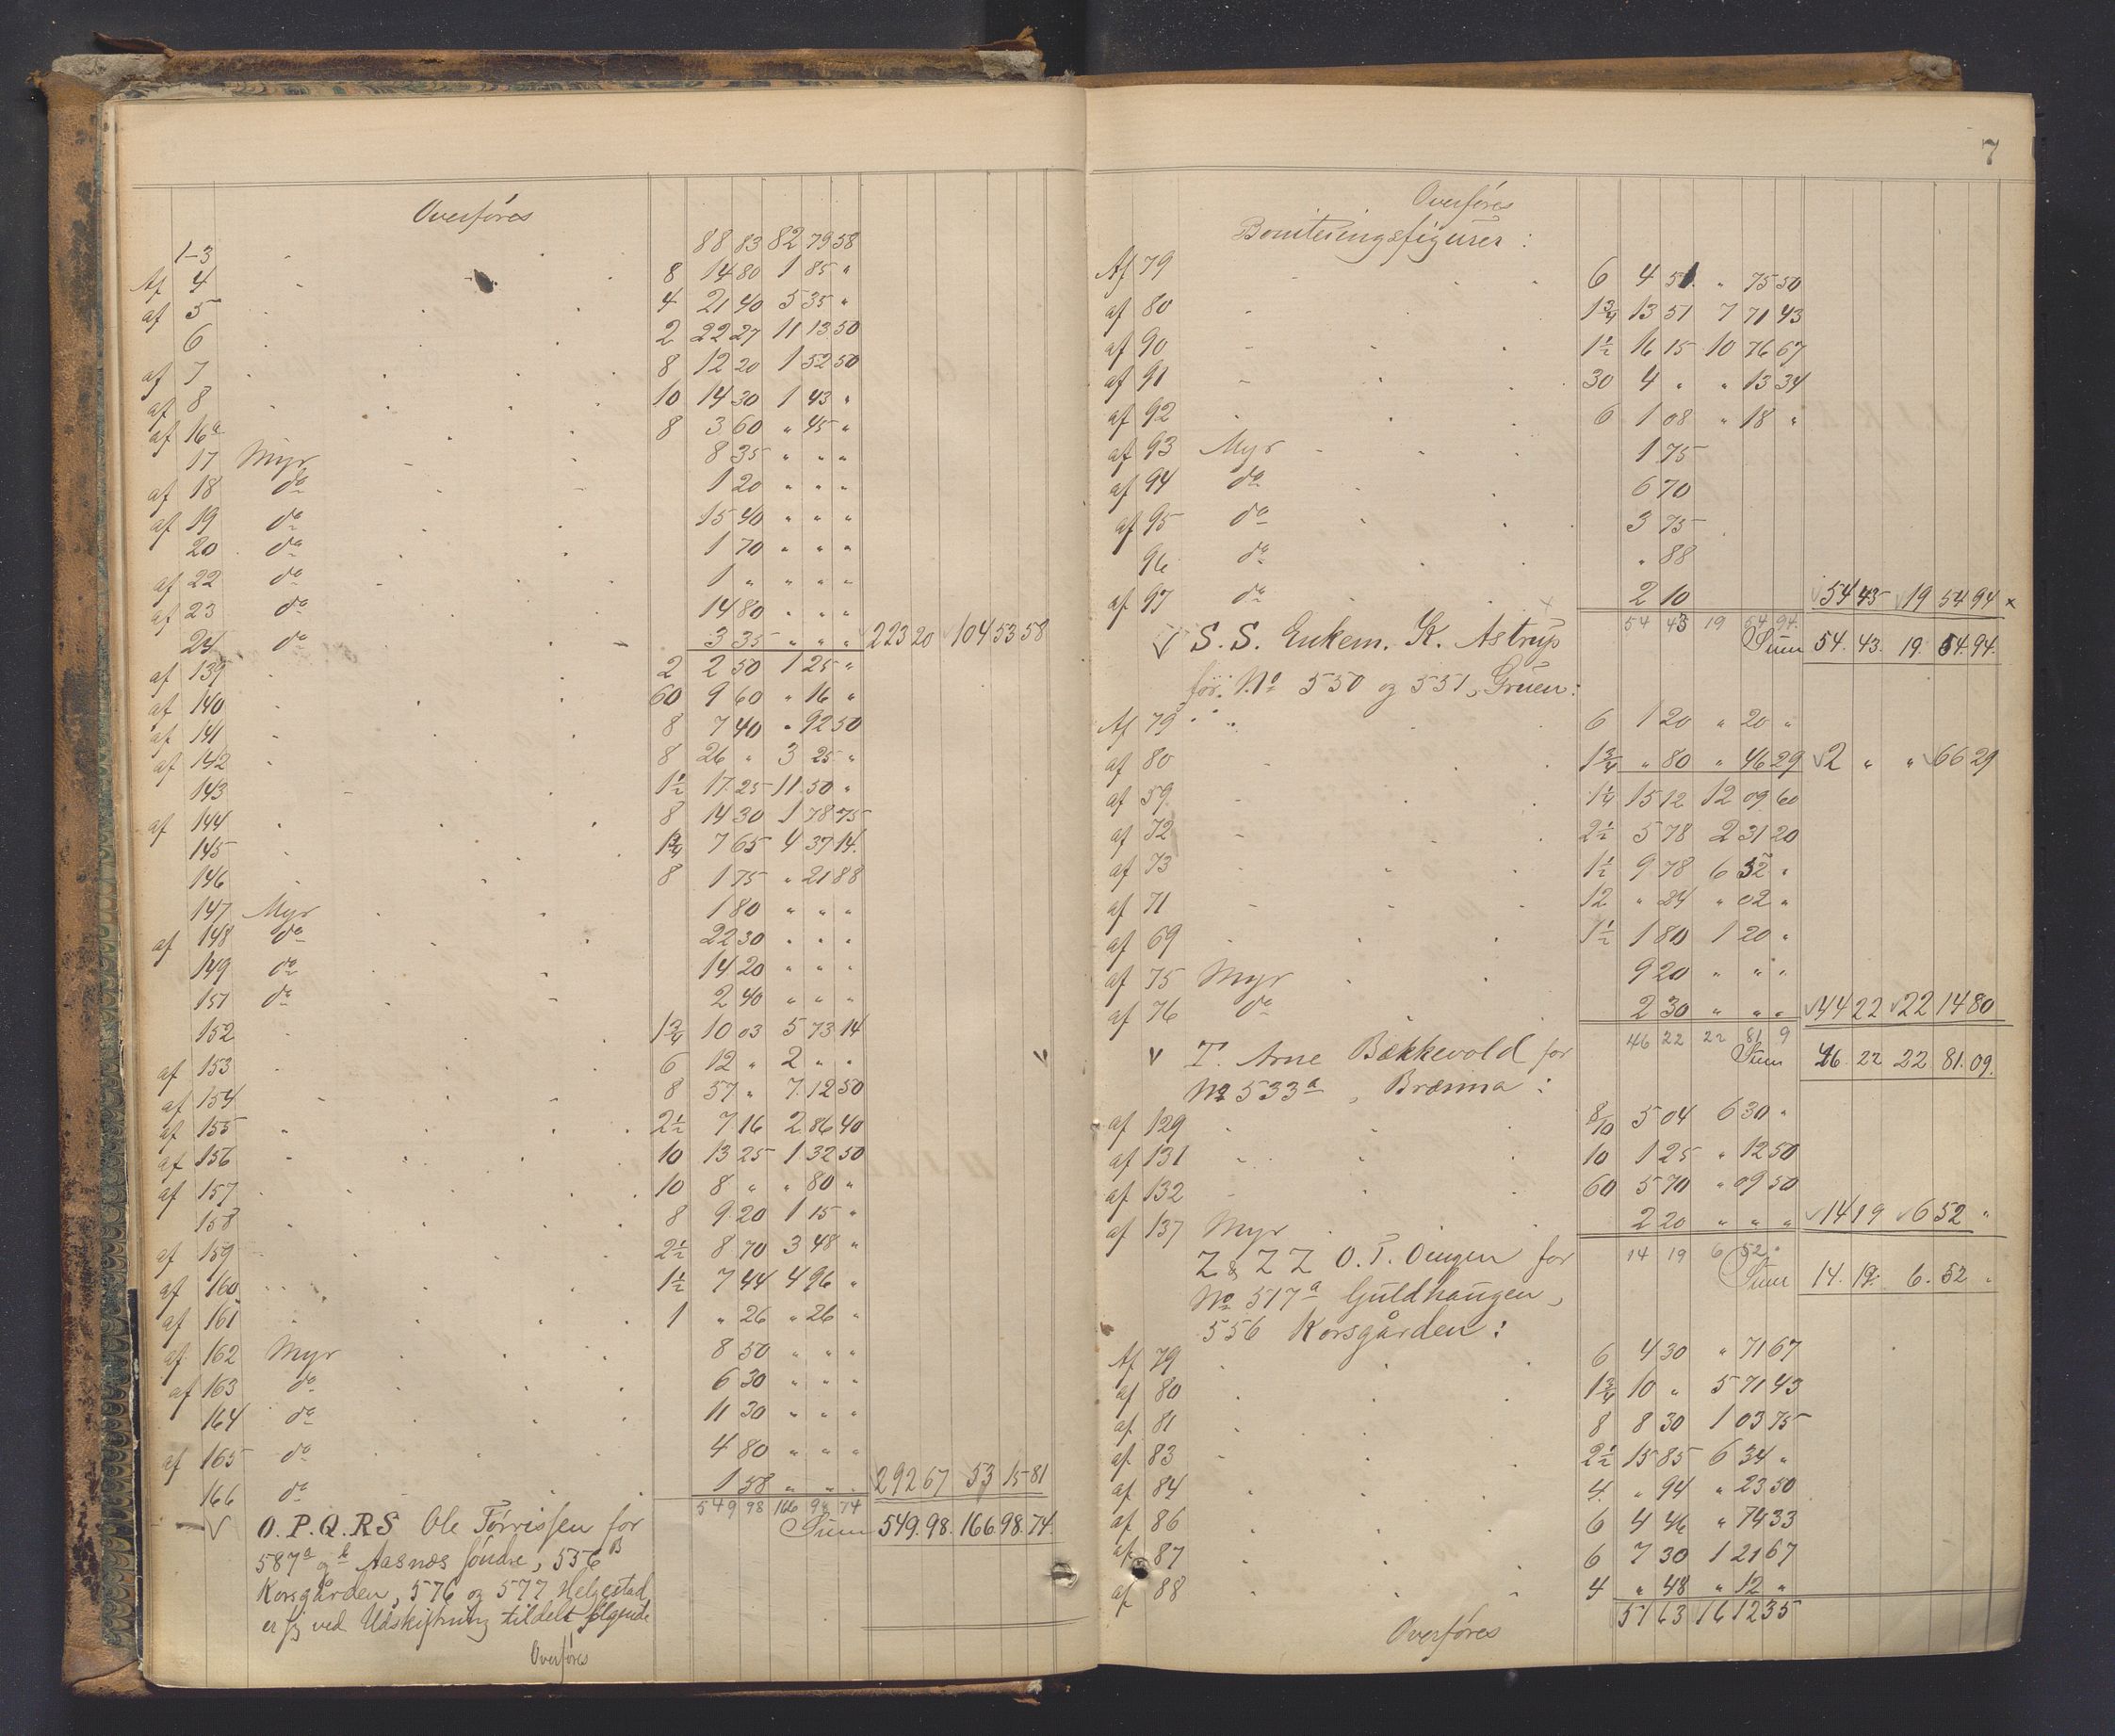 Overføres
88 83 82 79 58
1-3
Af 4 8 14 80 1 85 "
af 5 4 21 40 5 35 "
6 2 22 27 11 13 50
af 7 8 12 20 1 52 50
af 8 10 14 30 1 43 "
af 16a 8 3 60 " 45 "
17 Myr 8 35 " " "
af 18 do 1 20 " " "
af 19 do 15 40 " " "
20 do 1 70 " " "
af 22 do 1 " " " "
af 23 do 14 80 " " "
24 do 3 35 " " " 223 20 104 53 58
af 139 2 2 50 1 25 "
af 140 60 9 60 " 16 "
af 141 8 7 40 " 92 50
af 142 8 26 " 3 25 "
143 1½ 17 25 11 50 "
af 144 8 14 30 1 78 75
145 1¾ 7 65 4 37 14
146 8 1 75 " 21 88
147 Myr 1 80 " " "
af 148 do 22 30 " " "
149 do 14 20 " " "
151 do 2 40 " " "
152 1¾ 10 03 5 73 14
af 153 6 12 " 2 " "
af 154 8 57 " 7 12 50
af 155 2½ 7 16 2 86 40
af 156 10 13 25 1 32 50
af 157 10 8 " " 80 "
158 8 9 20 1 15 "
af 159 2½ 8 70 3 48 "
af 160 1½ 7 44 4 96 "
af 161 1 " 26 " 26 "
af 162 Myr 8 50 " " "
af 163 do 6 30 " " "
164 do 11 30 " " "
af 165 do 4 80 " " "
166 do 1 58 " " " 292 67 53 15 81
549 98 166 98 74
Sum 549. 98. 166. 98. 74.
O. P. Q. R S Ole Tørrissen for
587a og b Aasnæs søndre, 556B
Korsgården, 576 og 577 Helgestad,
er sj ved Udskiftning tildelt følgende
Overføres
7
Overføres
Boniteringsfigurer:
Af 79 6 4 51 " 75 50
af 80 1¾ 13 51 7 71 43
af 90 1½ 16 15 10 76 67
af 91 30 4 " " 13 34
af 92 6 1 08 " 18 "
af 93 Myr 1 75
af 94 do 6 70
af 95 do 3 75
96 do " 88
af 97 do 2 10 54 43 19 54 94 x
54 43 19 54 94
S. S. Enkem. K. Astrup Sum 54. 43. 19. 54. 94.
for No 550 og 551, Gruen:
Af 79 6 1 20 " 20 "
af 80 1¾ " 80 " 46 29 2 " " 66 29
af 59 1¼ 15 12 12 09 60
af 72 2½ 5 78 2 31 20
af 73 1½ 9 78 6 52 "
af 71 12 " 24 " 02 "
af 69 1½ 1 80 1 20 "
af 75 Myr 9 20 " " "
af 76 do 2 30 " " " 44 22 22 14 80
46 22 22 81 9
T. Arne Bækkevold for Sum 46. 22 22 81. 09.
No 533a, Brænna:
af 129 8/10 5 04 6 30 "
af 131 10 1 25 " 12 50
af 132 60 5 70 " 09 50
af 137 Myr 2 20 " " " 14 19 6 52 "
14 19 6 52 "
Z & Z Z O. T. Oengen for Sum 14. 19. 6. 52 "
No 517a Guldhaugen,
556 Korsgården:
Af 79 6 4 30 " 71 67
af 80 1¾ 10 " 5 71 43
af 81 8 8 30 1 03 75
af 83 2½ 15 85 6 34 "
af 84 4 " 94 " 23 50
af 86 6 4 46 " 74 33
af 87 6 7 30 1 21 67
af 88 4 " 48 " 12 "
51 63 16 12 35
Overføres